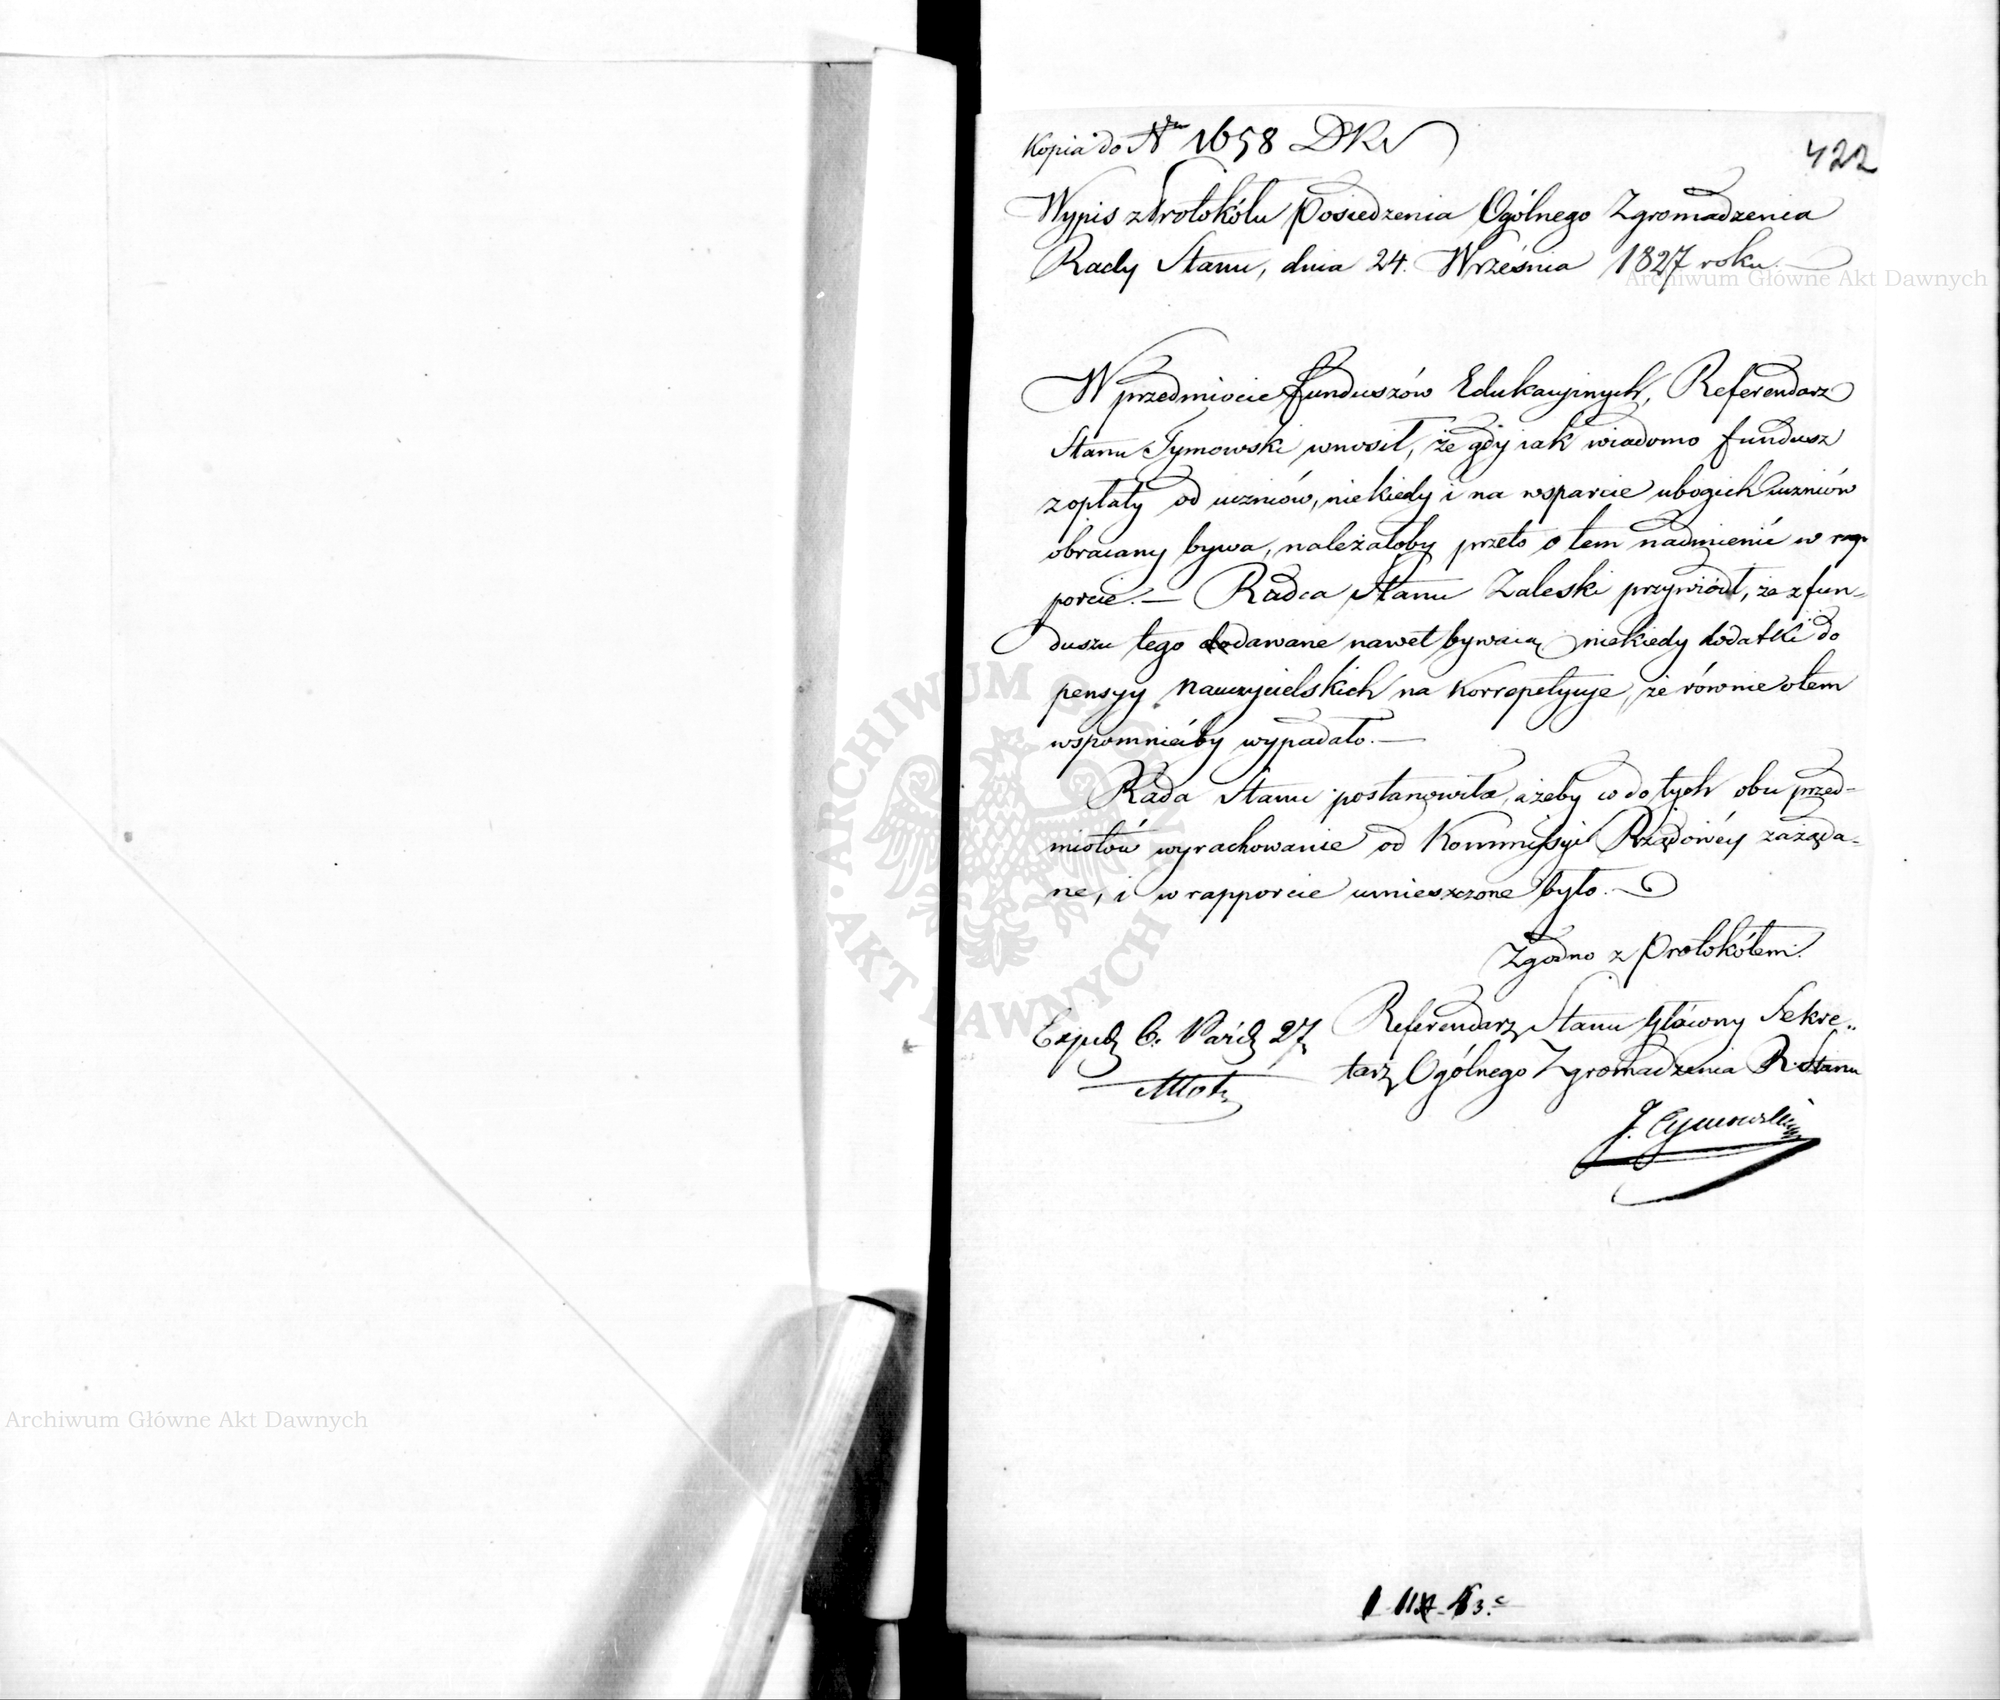 Kopia do Nru 1658 DKs
422
Wypis z Protokółu Posiedzenia Ogólnego Zgromadzenia
Rady Stanu, dnia 24. Września 1827 roku.
Archiwum Główne Akt Dawnych
W przedmiocie funduszów Edukacyinych, Referendarz
Stanu Tymowski wnosił, że gdy iak wiadomo fundusz
z opłaty od uczniów, niekiedy i na wsparcie ubogich uczniów
obracany bywa, należałoby przeto o tem nadmienić w rap-
porcie. — Radca Stanu Zaleski przywiódł, że z fun-
duszu tego dodawane nawet bywaią niekiedy dodatki do
pensyy Nauczycielskich na Korrepetycye, że równie o tem
wspomniećby wypadało. —
Rada Stanu postanowiła, ażeby co do tych obu przed-
miotów wyrachowanie od Kommissyi Rządowéy zażąda-
ne, i w rapporcie umieszczone było. —
Zgodno z Protokółem.
Referendarz Stanu Główny Sekre-
tarz Ogólnego Zgromadzenia R. Stanu
Exped. 6. Paźd. 27
J. Tymowski
ARCHIWUM GŁÓWNE AKT DAWNYCH
Archiwum Główne Akt Dawnych